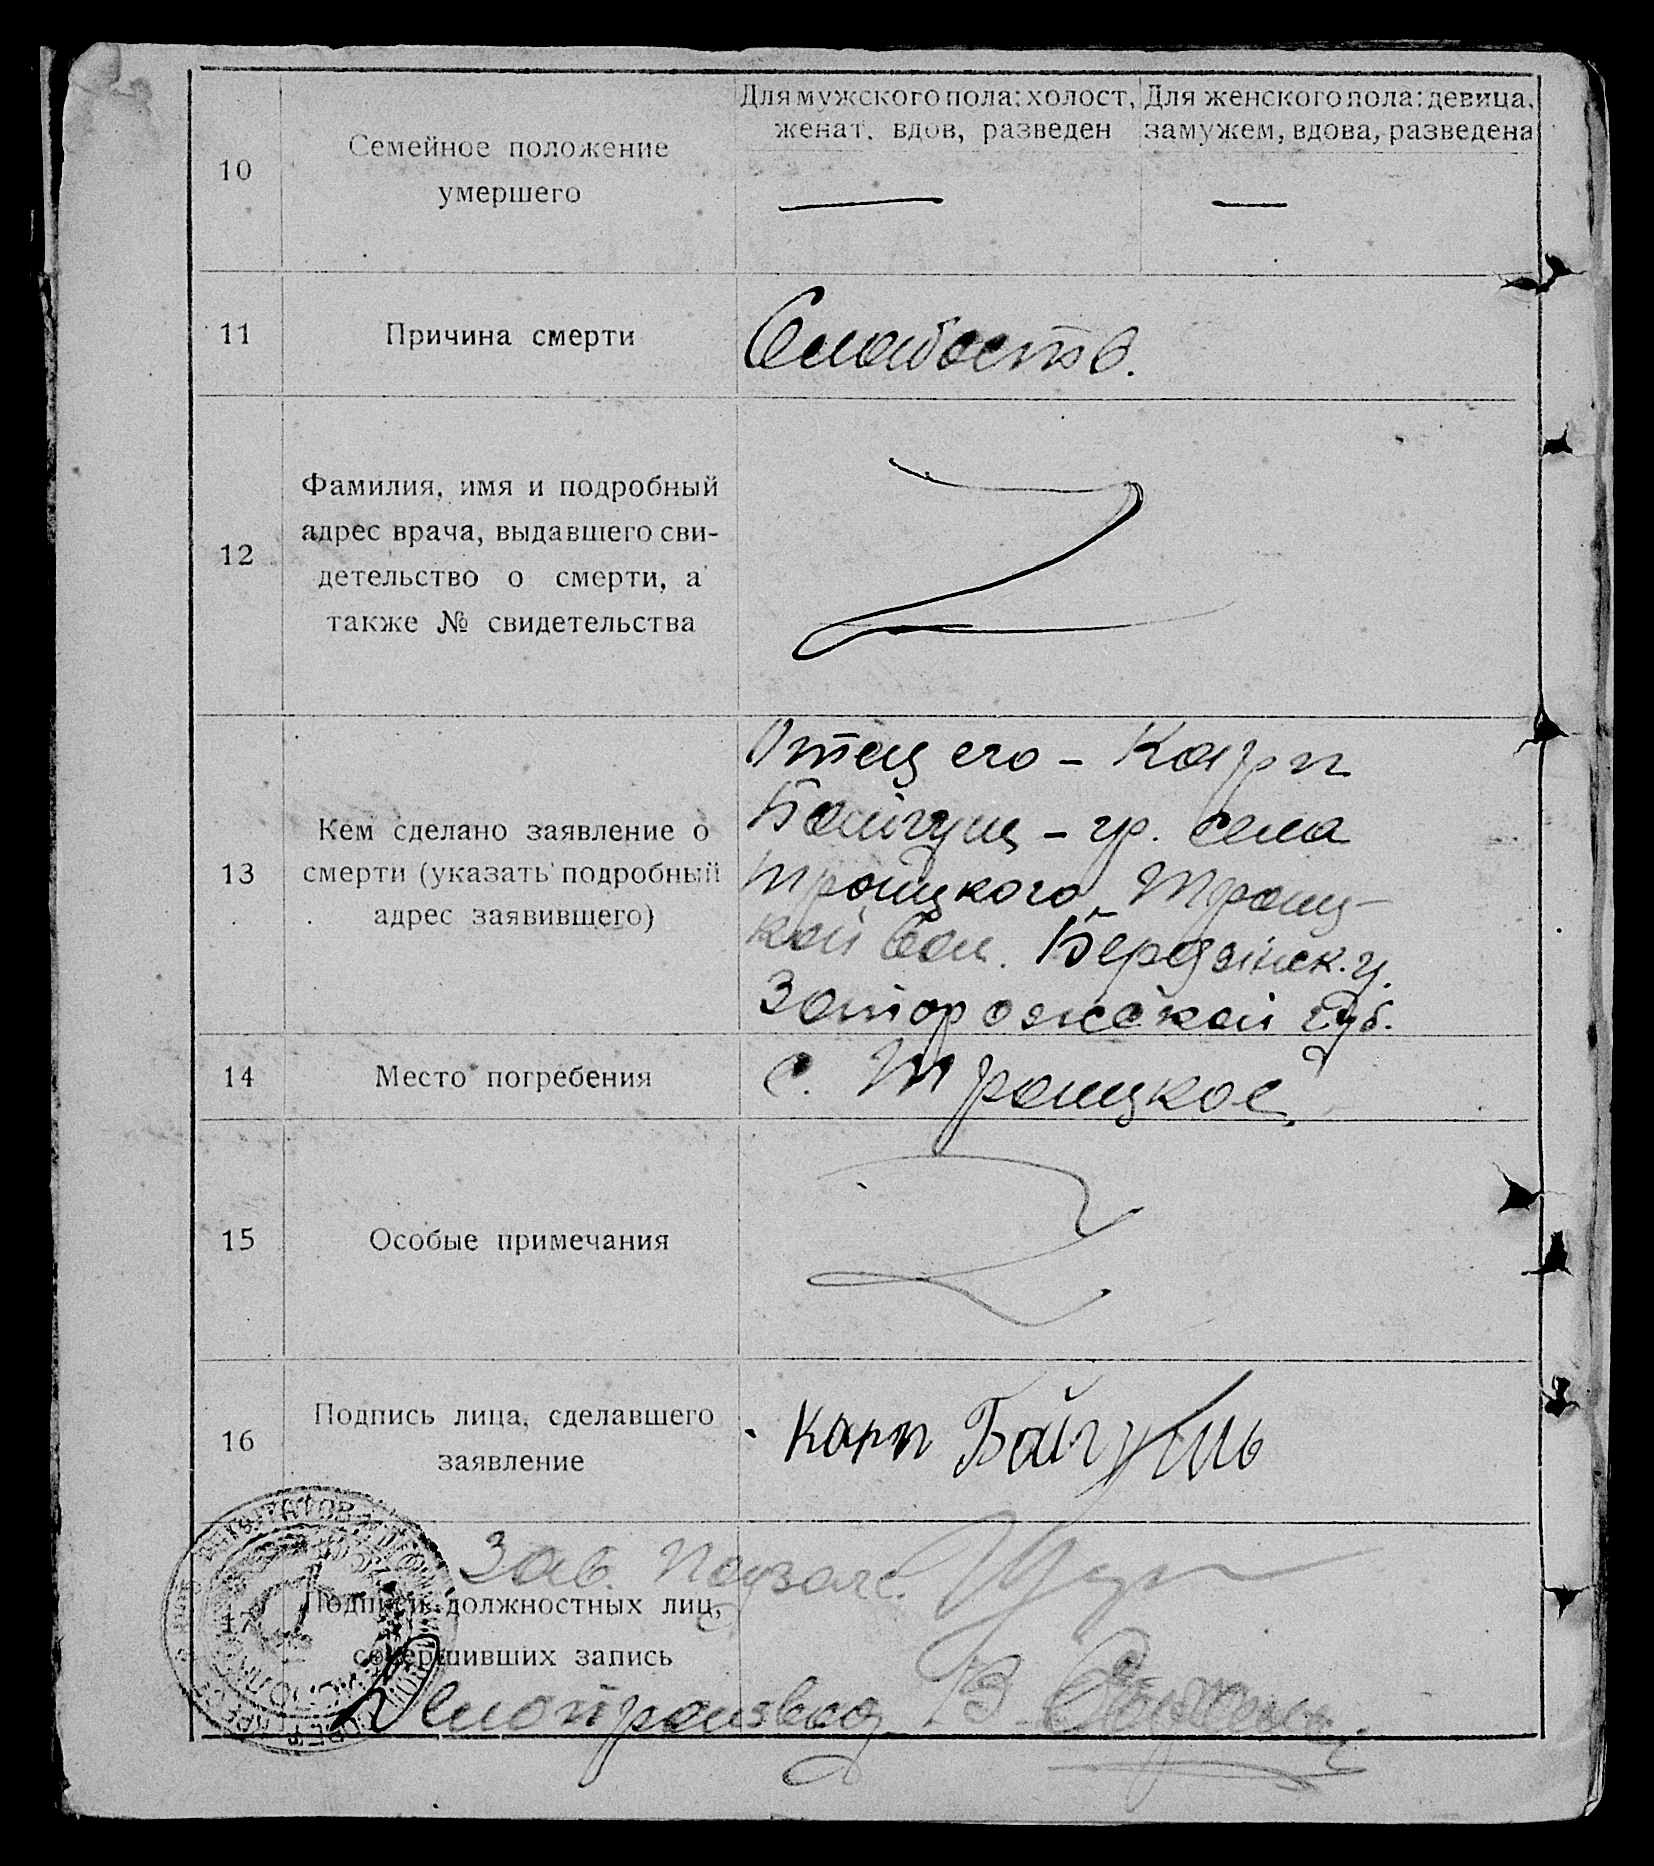 Для мужского пола: холост, женат, вдов, разведен
Для женского пола: девица, замужем, вдова, разведена
10
Семейное положение
умершего
—
—
11
Причина смерти
Слабость.
12
Фамилия, имя и подробный
адрес врача, выдавшего сви-
детельство о смерти, а
также № свидетельства
13
Кем сделано заявление о
смерти (указать подробный
адрес заявившего)
Отец его – Карп
Байгуш – гр. села
Троицкого Троиц-
кой вол. Бердянск. у.
Запорожской губ.
14
Место погребения
с. Троицкое
15
Особые примечания
16
Подпись лица, сделавшего
заявление
Карп Байгушь
17
Подписи должностных лиц,
совершивших запись
Зав. Подзагс.
Делопроизвод. В.